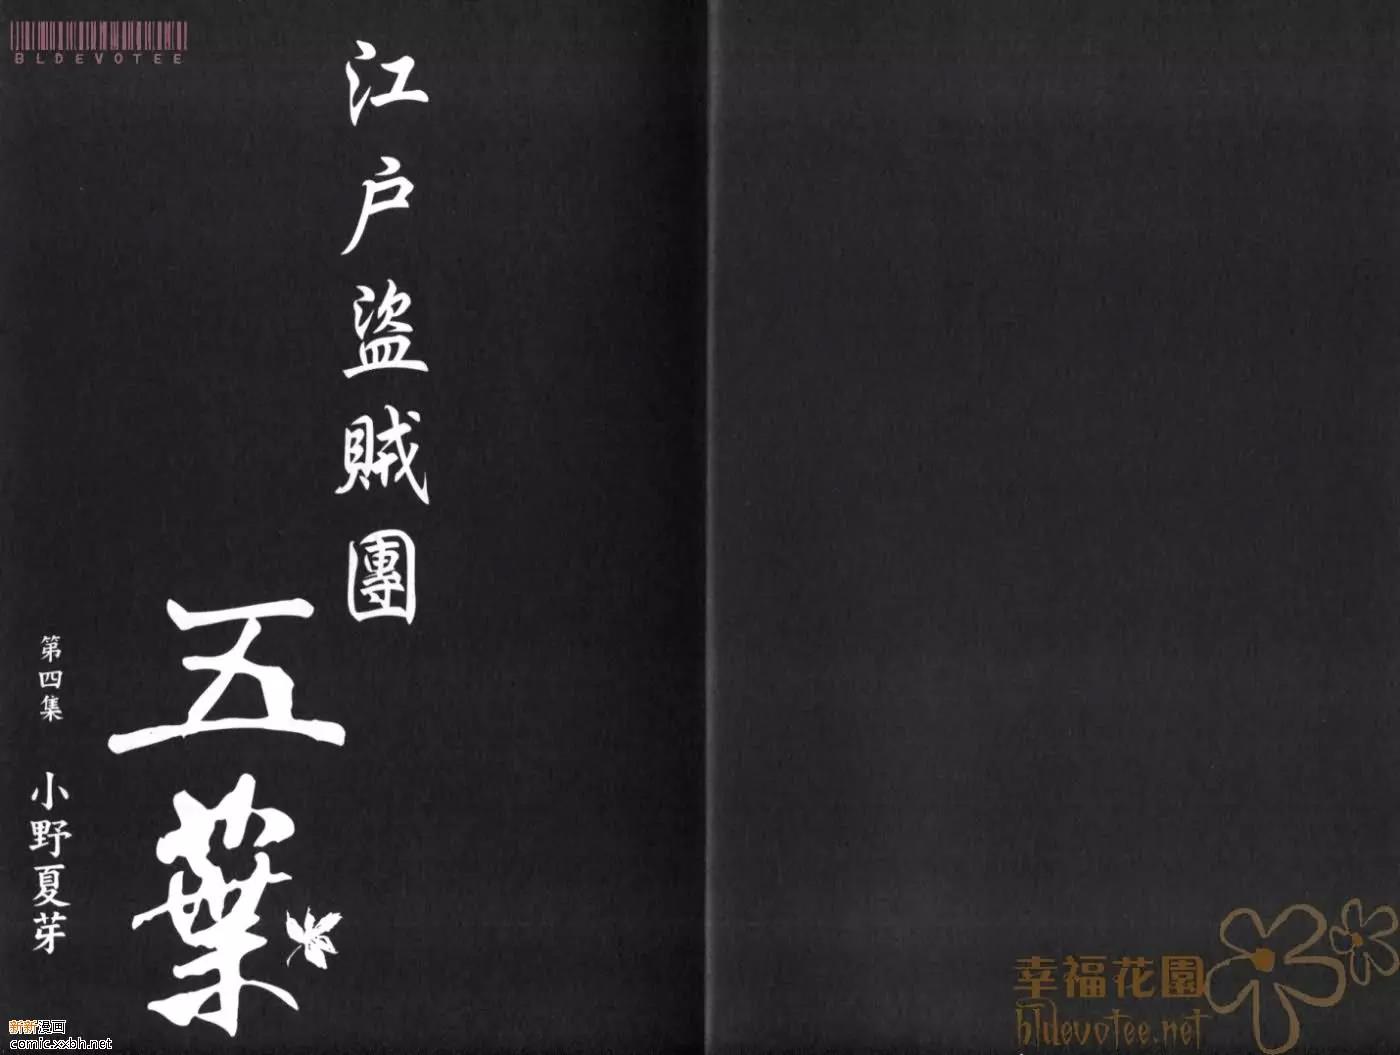 BLDEVOTEE
江戶盜賊團
五葉
第四集
小野夏芽
新新漫画
comic.xxbh.net
幸福花園
bldevotee.net